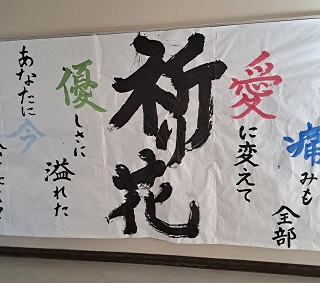 痛みも
全部
愛に変えて
祈り花
優しさに
溢れた
あなたに
今